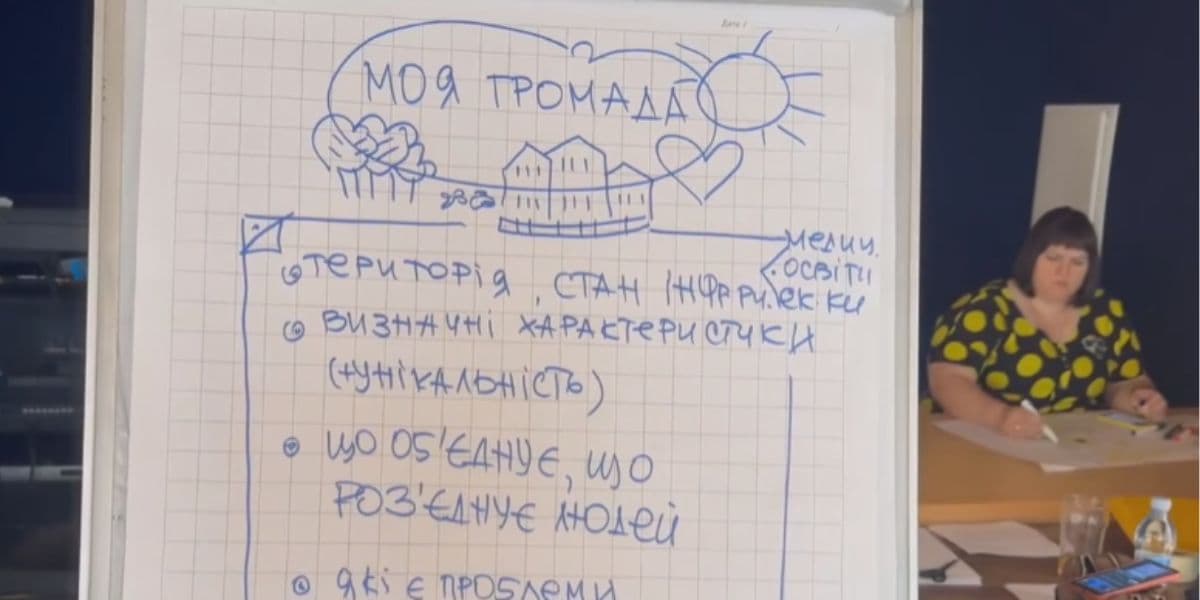 МОЯ ГРОМАДА
медиц.
освіти
територія, стан інфр
визначні характеристики
(+унікальність)
що об'єднує, що
роз'єднує людей
які є проблеми